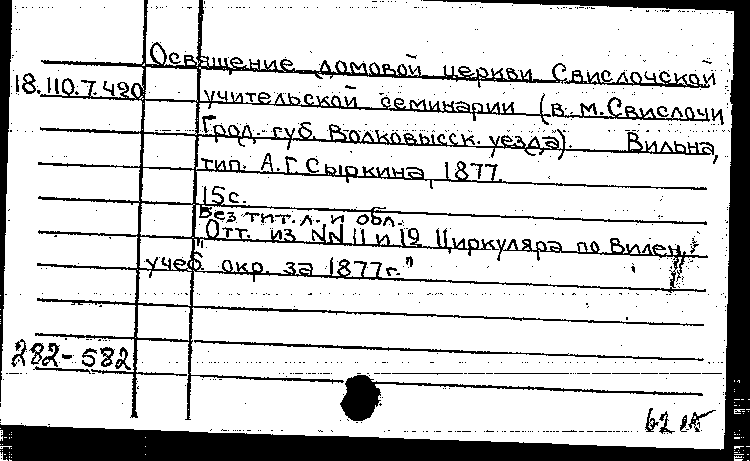 Освящение домовой церкви Свислочской
18.110.7.490
учительской семинарии (в м. Свислочи
Грод. губ. Волковысск. уезда). Вильна,
тип. А.Г. Сыркина, 1877.
15 с.
Без тит. л. и обл.
Отт. из NN 11 и 12 "Циркуляра по Вилен.
учеб. окр. за 1877 г."
282-582